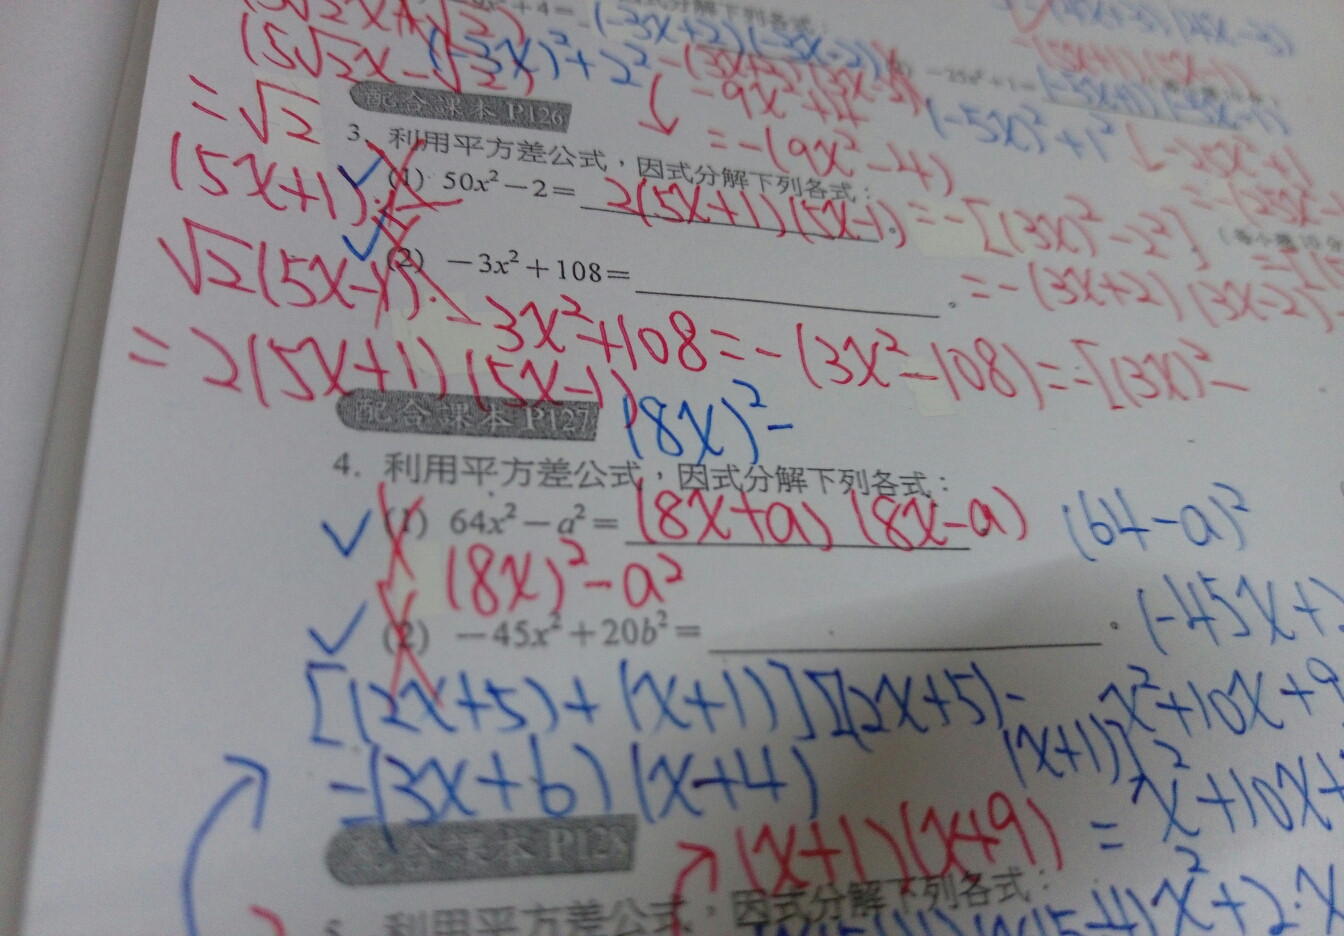 (-3x+2)(-3x-2)
(5√2x-√2)
(-3x)²+2²
-(3x+2)(3x-2)
-9x²+4
=-(9x²-4)
=-[(3x)²-2²]
=-(3x+2)(3x-2)
(-5x)²+1²
-25x²+1
配合課本P126
=√2
(5x+1)·
√2(5x-1)·
=2(5x+1)(5x-1)
3. 利用平方差公式，因式分解下列各式：
(1) 50x²-2= 2(5x+1)(5x-1)。
(2) -3x²+108= 。
-3x²+108=-(3x²-108)=-[(3x)²-
配合課本P127
(8x)²-
4. 利用平方差公式，因式分解下列各式：
(1) 64x²-a²= (8x+a)(8x-a)
(64-a)²
(8x)²-a²
(2) -45x²+20b²= 。
(-45x+
[(2x+5)+(x+1)][(2x+5)-
(x+1)]
=(3x+6)(x+4)
x²+10x+9
x²+10x+
配合課本P128
(x+1)(x+9)
=
5. 利用平方差公式，因式分解下列各式：
x²+2·x